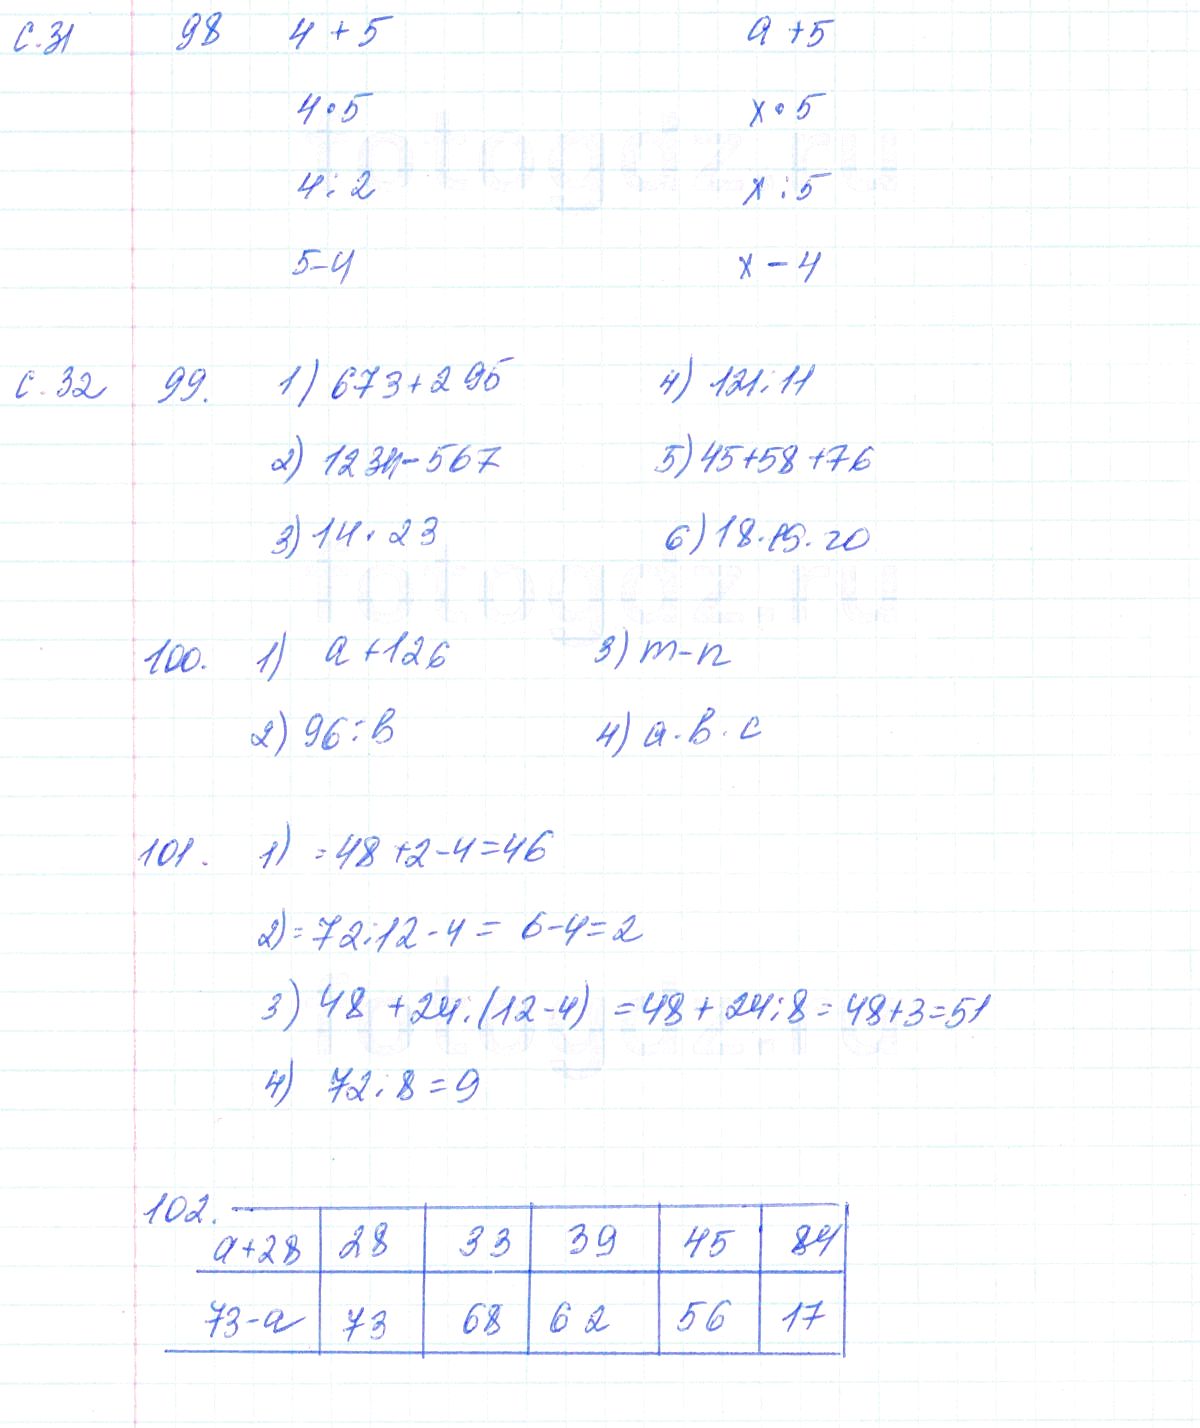 с.31 98 4 + 5 a + 5
4 • 5 x • 5
4 : 2 x : 5
5 - 4 x - 4
с. 32 99. 1) 673 + 295 4) 121 : 11
2) 1234 - 567 5) 45 + 58 + 76
3) 14 · 23 6) 18 · 19 · 20
fotogdz.ru
100. 1) a + 126 3) m - n
2) 96 : b 4) a · b · c
101. 1) = 48 + 2 - 4 = 46
2) = 72 : 12 - 4 = 6 - 4 = 2
3) 48 + 24 : (12 - 4) = 48 + 24 : 8 = 48 + 3 = 51
4) 72 : 8 = 9
102.
a + 28 28 33 39 45 84
73 - a 73 68 62 56 17